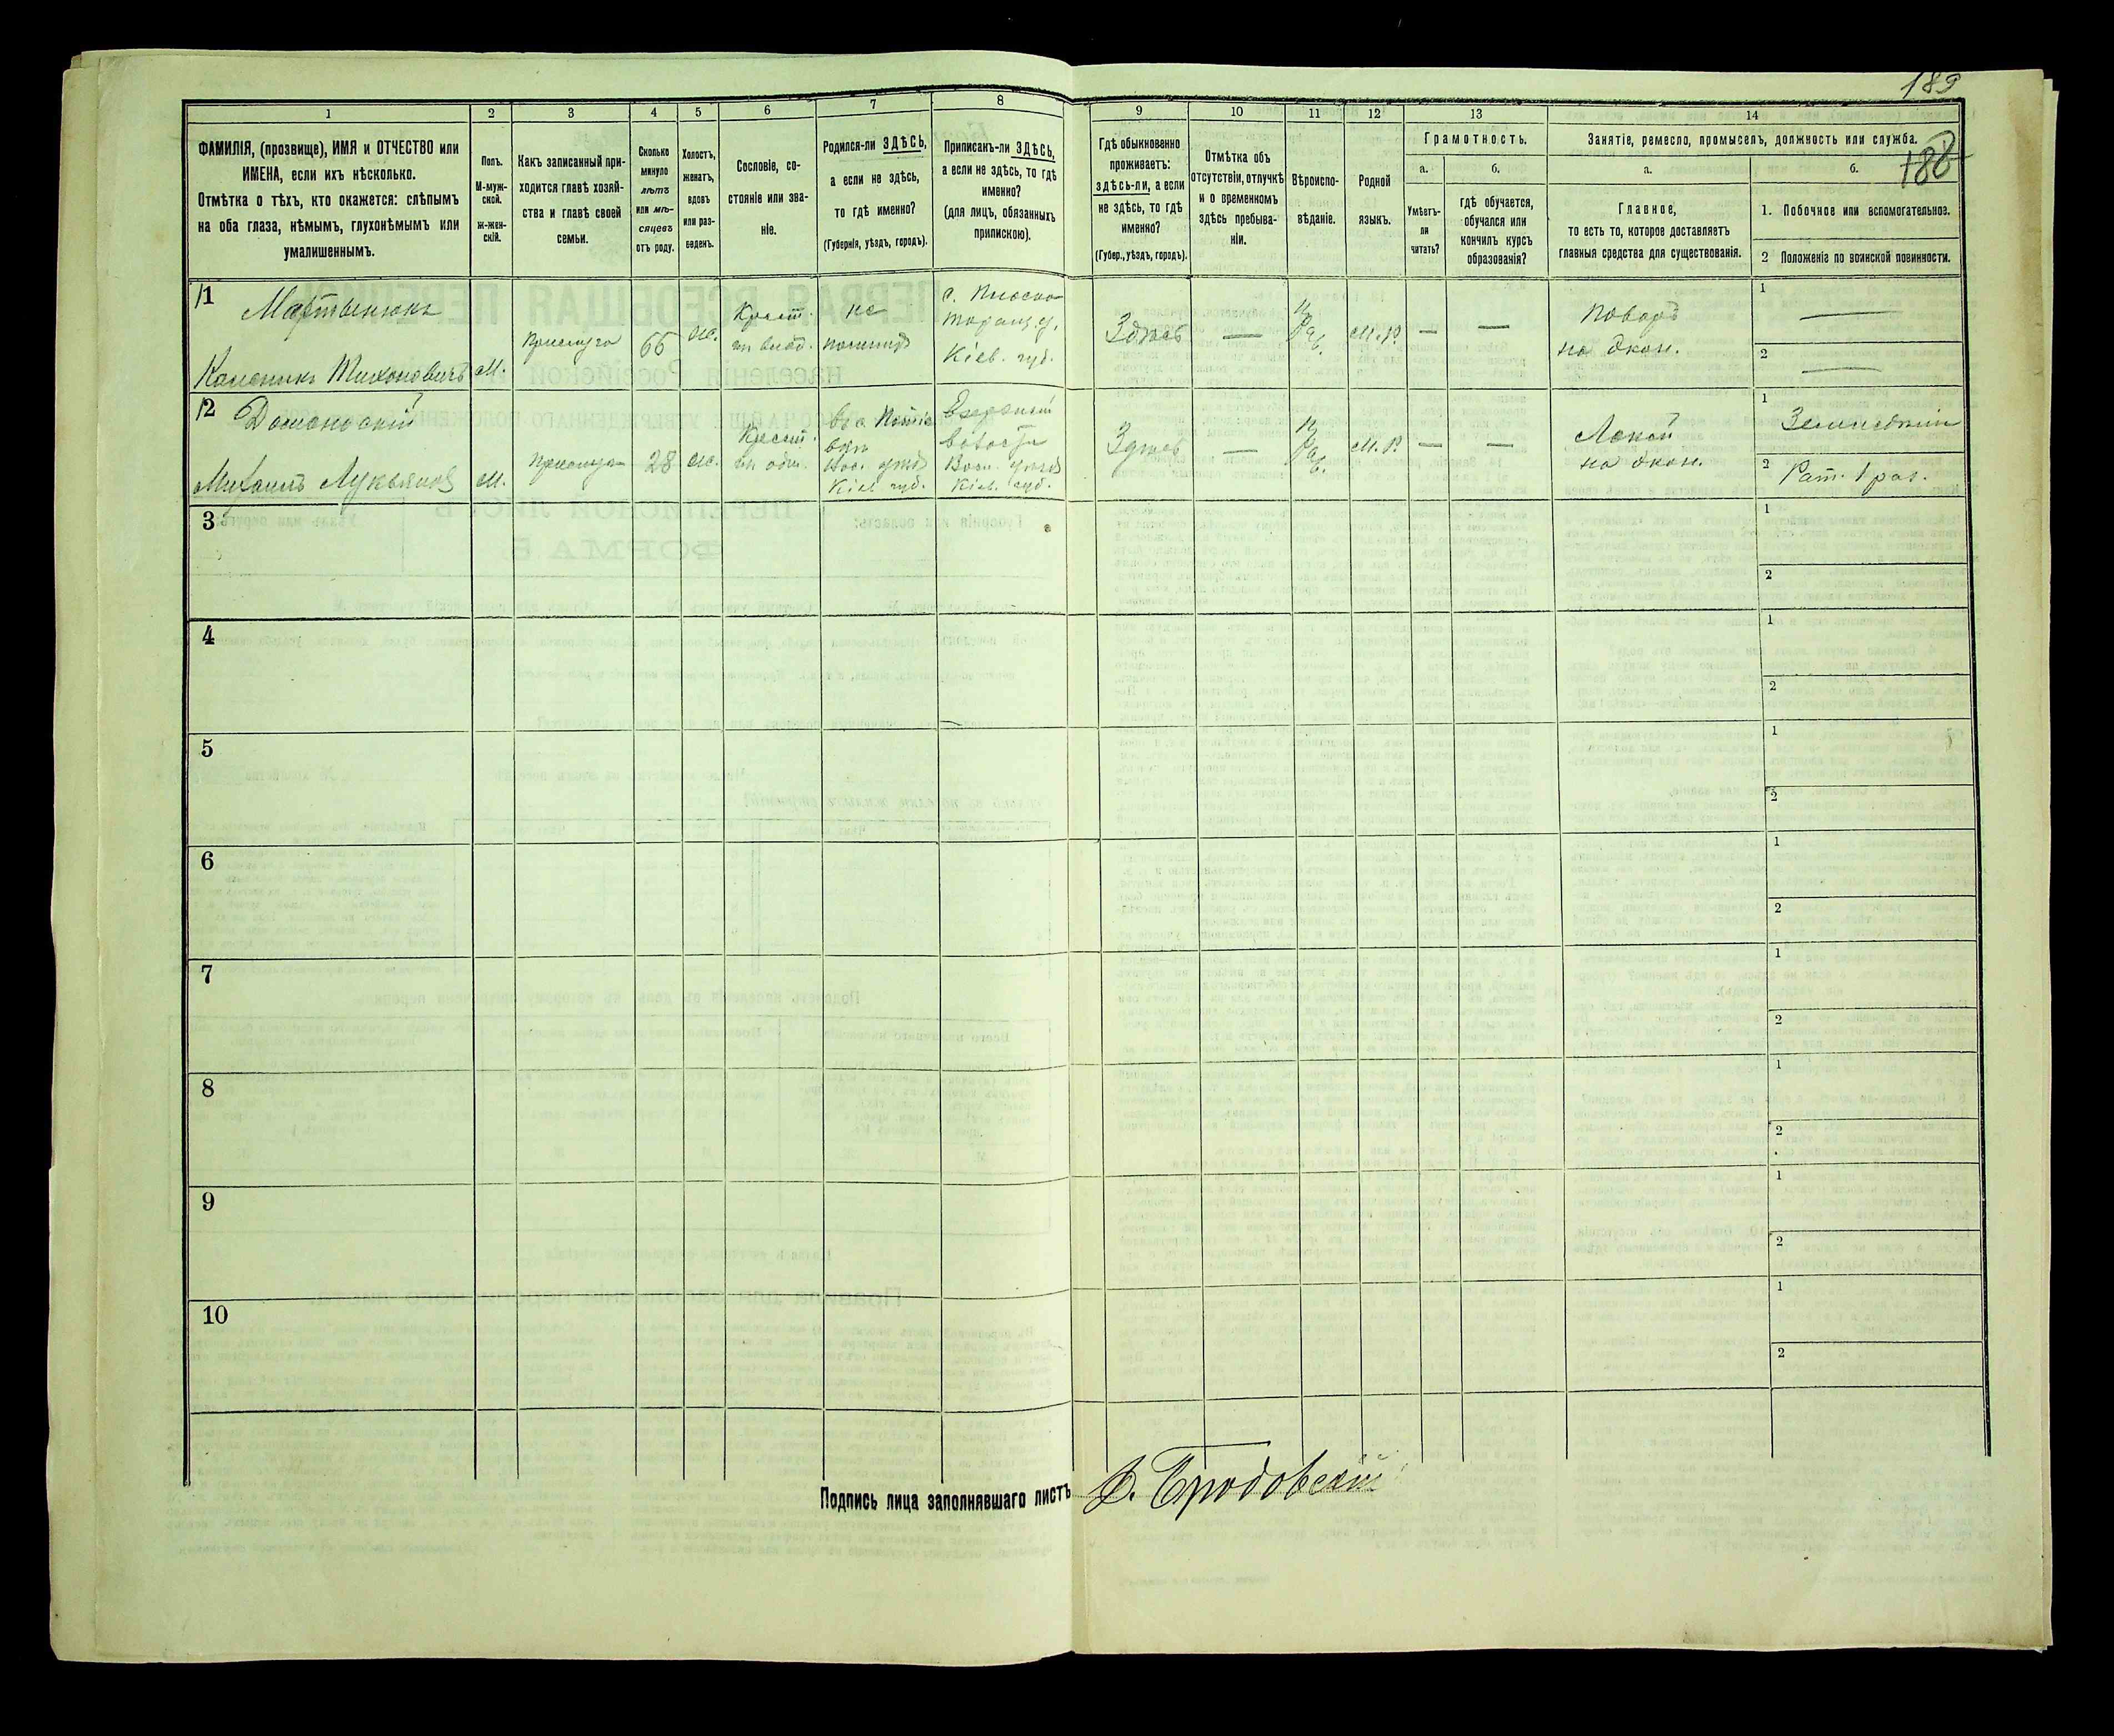 189
188
1
2
3
4
5
6
7
8
9
10
11
12
13
14
ФАМИЛІЯ, (прозвище), ИМЯ и ОТЧЕСТВО или
ИМЕНА, если ихъ нѣсколько.
Отмѣтка о тѣхъ, кто окажется: слѣпымъ
на оба глаза, нѣмымъ, глухонѣмымъ или
умалишеннымъ.
Полъ.
М-муж-
ской.
ж-жен-
скій.
Какъ записанный при-
ходится главѣ хозяй-
ства и главѣ своей
семьи.
Сколько
минуло
лѣтъ
или мѣ-
сяцевъ
отъ роду.
Холостъ,
женатъ,
вдовъ
или раз-
веденъ.
Сословіе, со-
стояніе или зва-
ніе.
Родился-ли ЗДѢСЬ,
а если не здѣсь,
то гдѣ именно?
(Губернія, уѣздъ, городъ).
Приписанъ-ли ЗДѢСЬ,
а если не здѣсь, то гдѣ
именно?
(для лицъ, обязанныхъ
припискою).
Гдѣ обыкновенно
проживаетъ:
здѣсь-ли, а если
не здѣсь, то гдѣ
именно?
(Губер., уѣздъ, городъ).
Отмѣтка объ
отсутствіи, отлучкѣ
и о временномъ
здѣсь пребыва-
ніи.
Вѣроиспо-
вѣданіе.
Родной
языкъ.
Грамотность.
а.
Умѣетъ-
ли
читать?
б.
гдѣ обучается,
обучался или
кончилъ курсъ
образованія?
Занятіе, ремесло, промыселъ, должность или служба.
а.
Главное,
то есть то, которое доставляетъ
главныя средства для существованія.
б.
1. Побочное или вспомогательное.
2 Положеніе по воинской повинности.
1
Мартынюкъ
Тихоновичъ
М.
Прислуга
66
Крест.
не
Кіев. губ.
Здѣсь
—
Прав.
М.Р.
—
—
Поваръ
на экон.
1
—
2
—
2
Михаилъ Лукьяновъ
М.
Прислуга
28
Крест.
Кіев. губ.
Кіев. губ.
Здѣсь
—
Прав.
М.Р.
—
—
Лакей
на экон.
1
2
Рат. 1 раз.
3
1
2
4
1
2
5
1
2
6
1
2
7
1
2
8
1
2
9
1
2
10
1
2
Подпись лица заполнявшаго листъ
Бродовскій